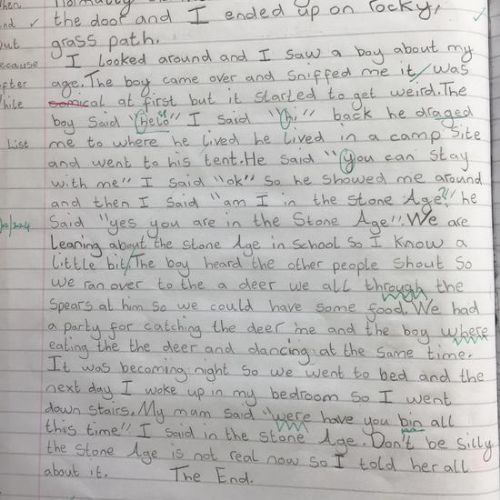 the door and I ended up on rocky,
grass path.
I looked around and I saw a boy about my
age. The boy came over and sniffed me it was
comical at first but it started to get weird. The
boy said "helo" I said "hi" back he draged
me to where he lived he lived in a camp site
and went to his tent. He said "you can stay
with me" I said "ok" so he showed me around
and then I said "am I in the stone Age?" he
said "yes you are in the Stone Age". We are
leaning about the stone Age in school so I know a
little bit. The boy heard the other people shout so
we ran over to the a deer we all through the
spears at him so we could have some food. We had
a party for catching the deer me and the boy where
eating the the deer and dancing at the same time.
It was becoming night so we went to bed and the
next day I woke up in my bedroom so I went
down stairs. My mum said "were have you bin all
this time" I said in the stone Age. Don't be silly
the stone Age is not real now so I told her all
about it. The End.